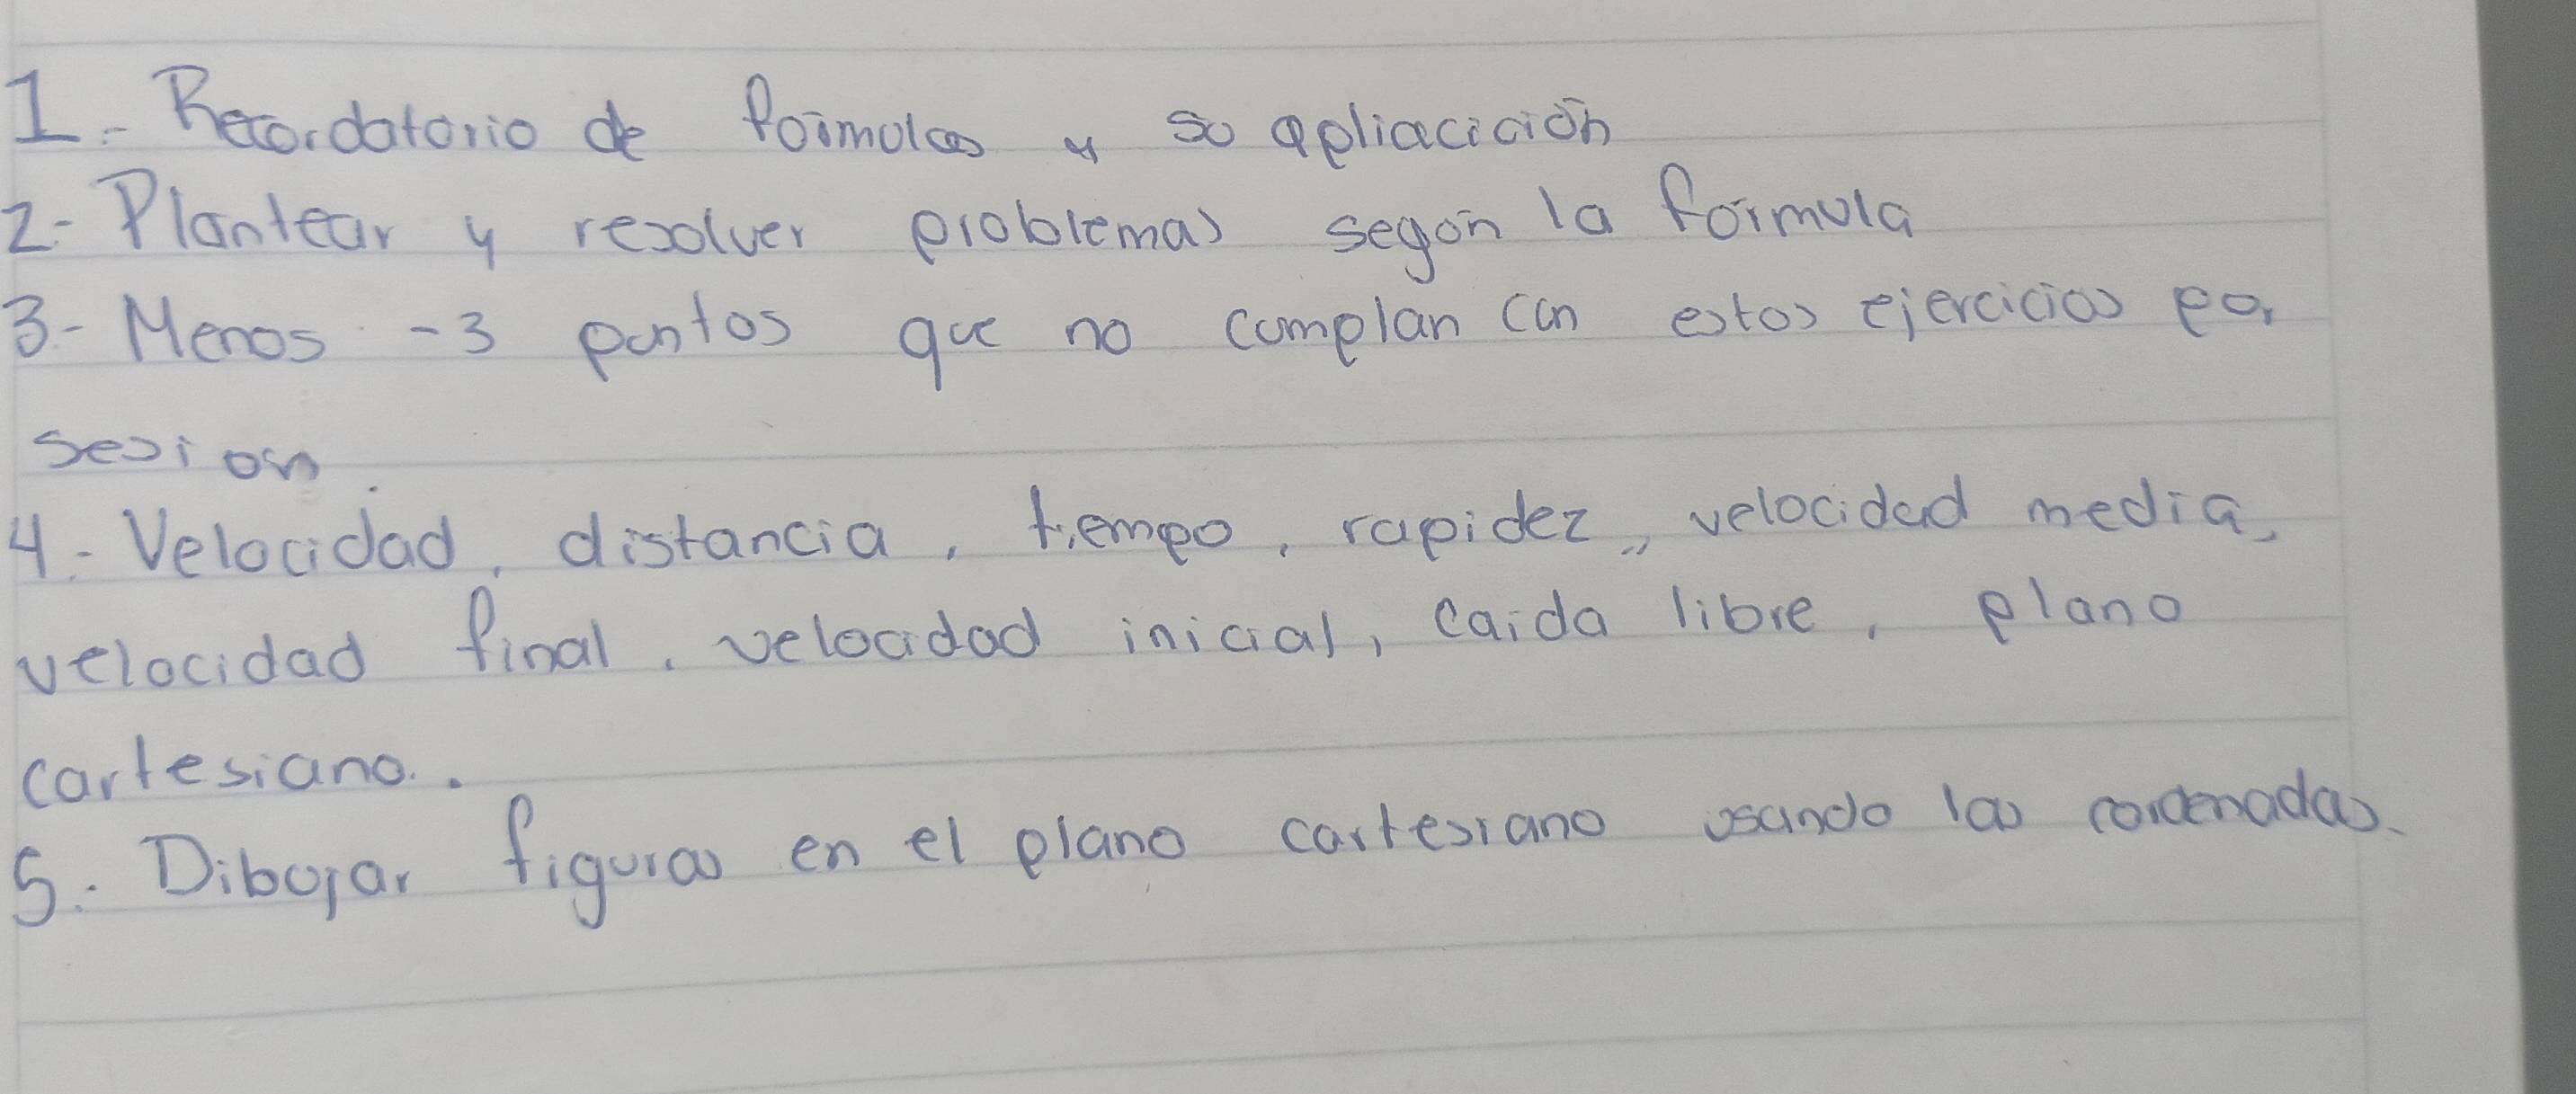 1.- Recordatorio de fórmulas y su apliacición
2.- Plantear y resolver problemas según la fórmula
3.- Menos -3 puntos que no cumplan con estos ejercicios por
sesion.
4.- Velocidad, distancia, tiempo, rapidez,, velocidad media,
velocidad final, velocidad inicial, caida libre, plano
cartesiano..
5.- Dibujar figuras en el plano cartesiano usando las cordenadas.